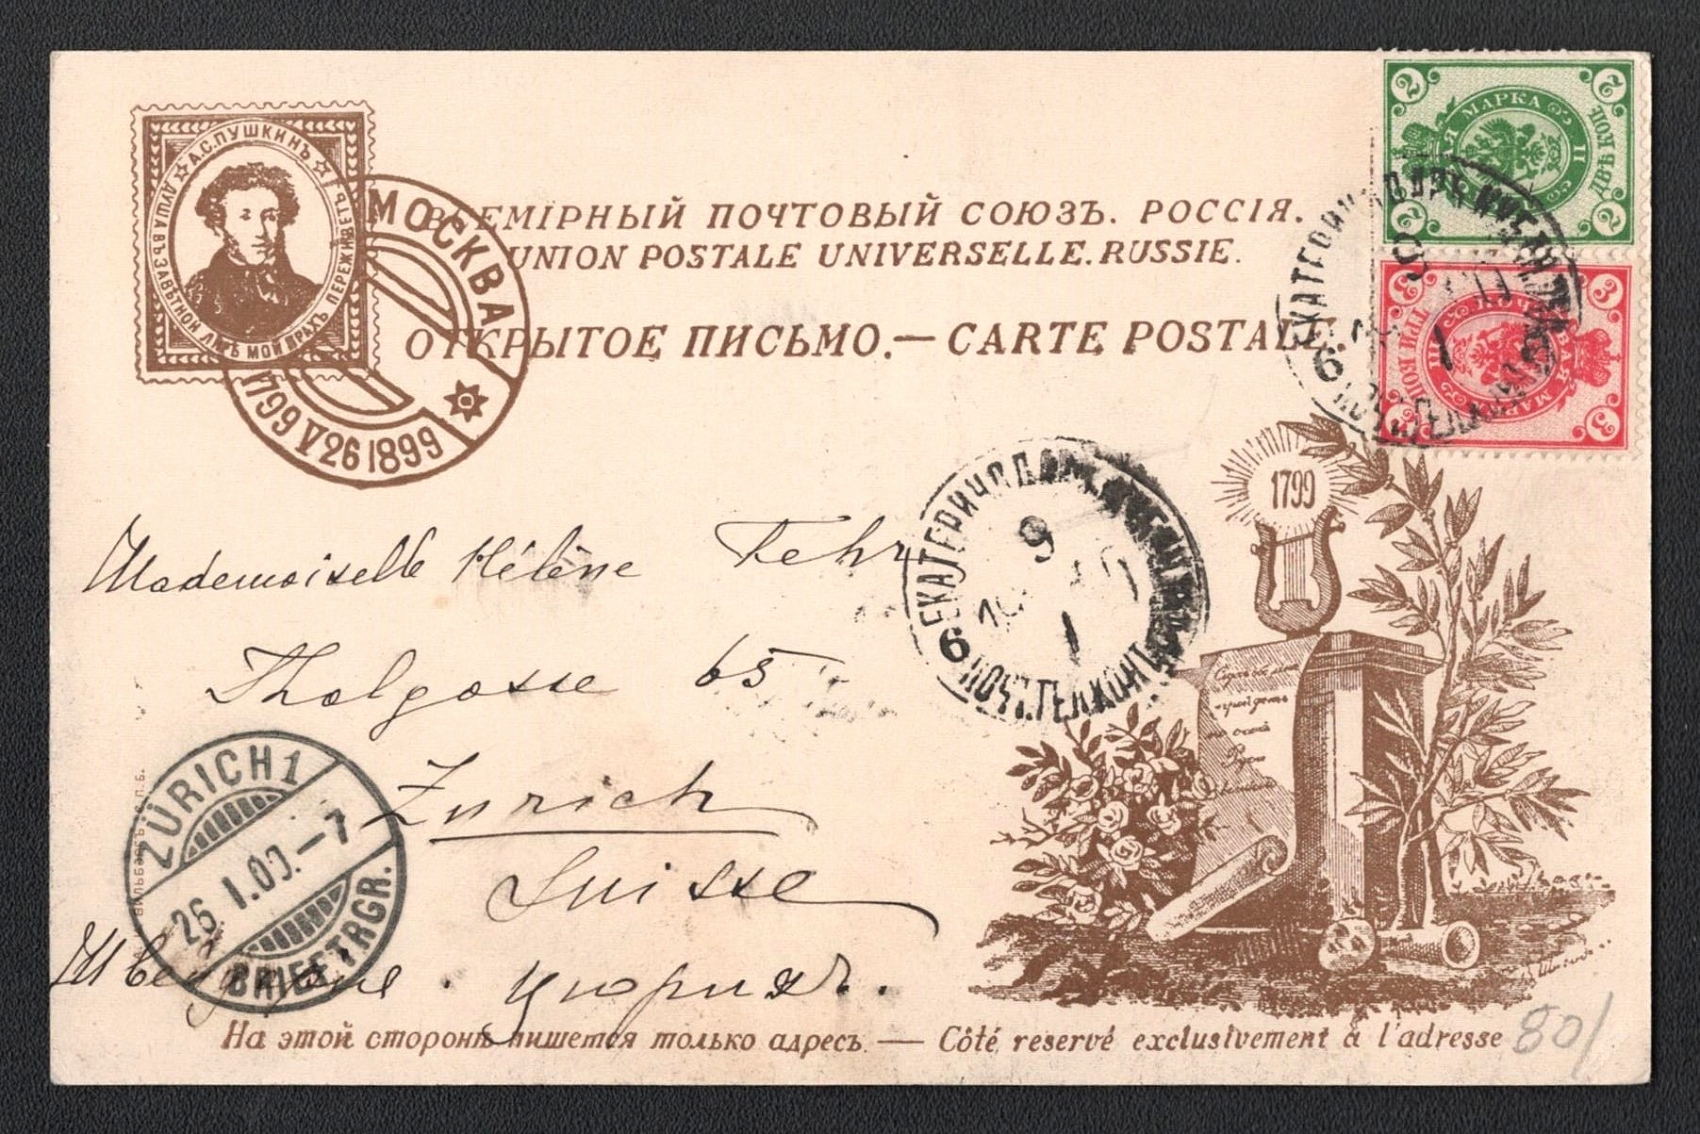 А.С.ПУШКИНЪ
ДУША ВЪ ЗАВѢТНОЙ ЛИРѢ МОЙ ПРАХЪ ПЕРЕЖИВЕТЪ
МОСКВА
1799 V 26 1899
ВСЕМІРНЫЙ ПОЧТОВЫЙ СОЮЗЪ. РОССІЯ.
UNION POSTALE UNIVERSELLE. RUSSIE.
ОТКРЫТОЕ ПИСЬМО.—CARTE POSTALE
2 2
МАРКА
ДВѢ КОП.
2 2
3 3
МАРКА
ТРИ КОП.
3 3
ЕКАТЕРИНОДАРЪ
9
1
6
1799
Mademoiselle Hélène Fehr
ЕКАТЕРИНОДАРЪ
9
10
1
6 ПОЧТ.ТЕЛ.КОНТ.
Tholgasse 65
Zurich
Suisse
ZÜRICH 1
26.I.00.–7
BRIEFTRGR.
Швейцарія. Цюрихъ.
На этой сторонѣ пишется только адресъ. — Côté reservé exclusivement à l'adresse
80/